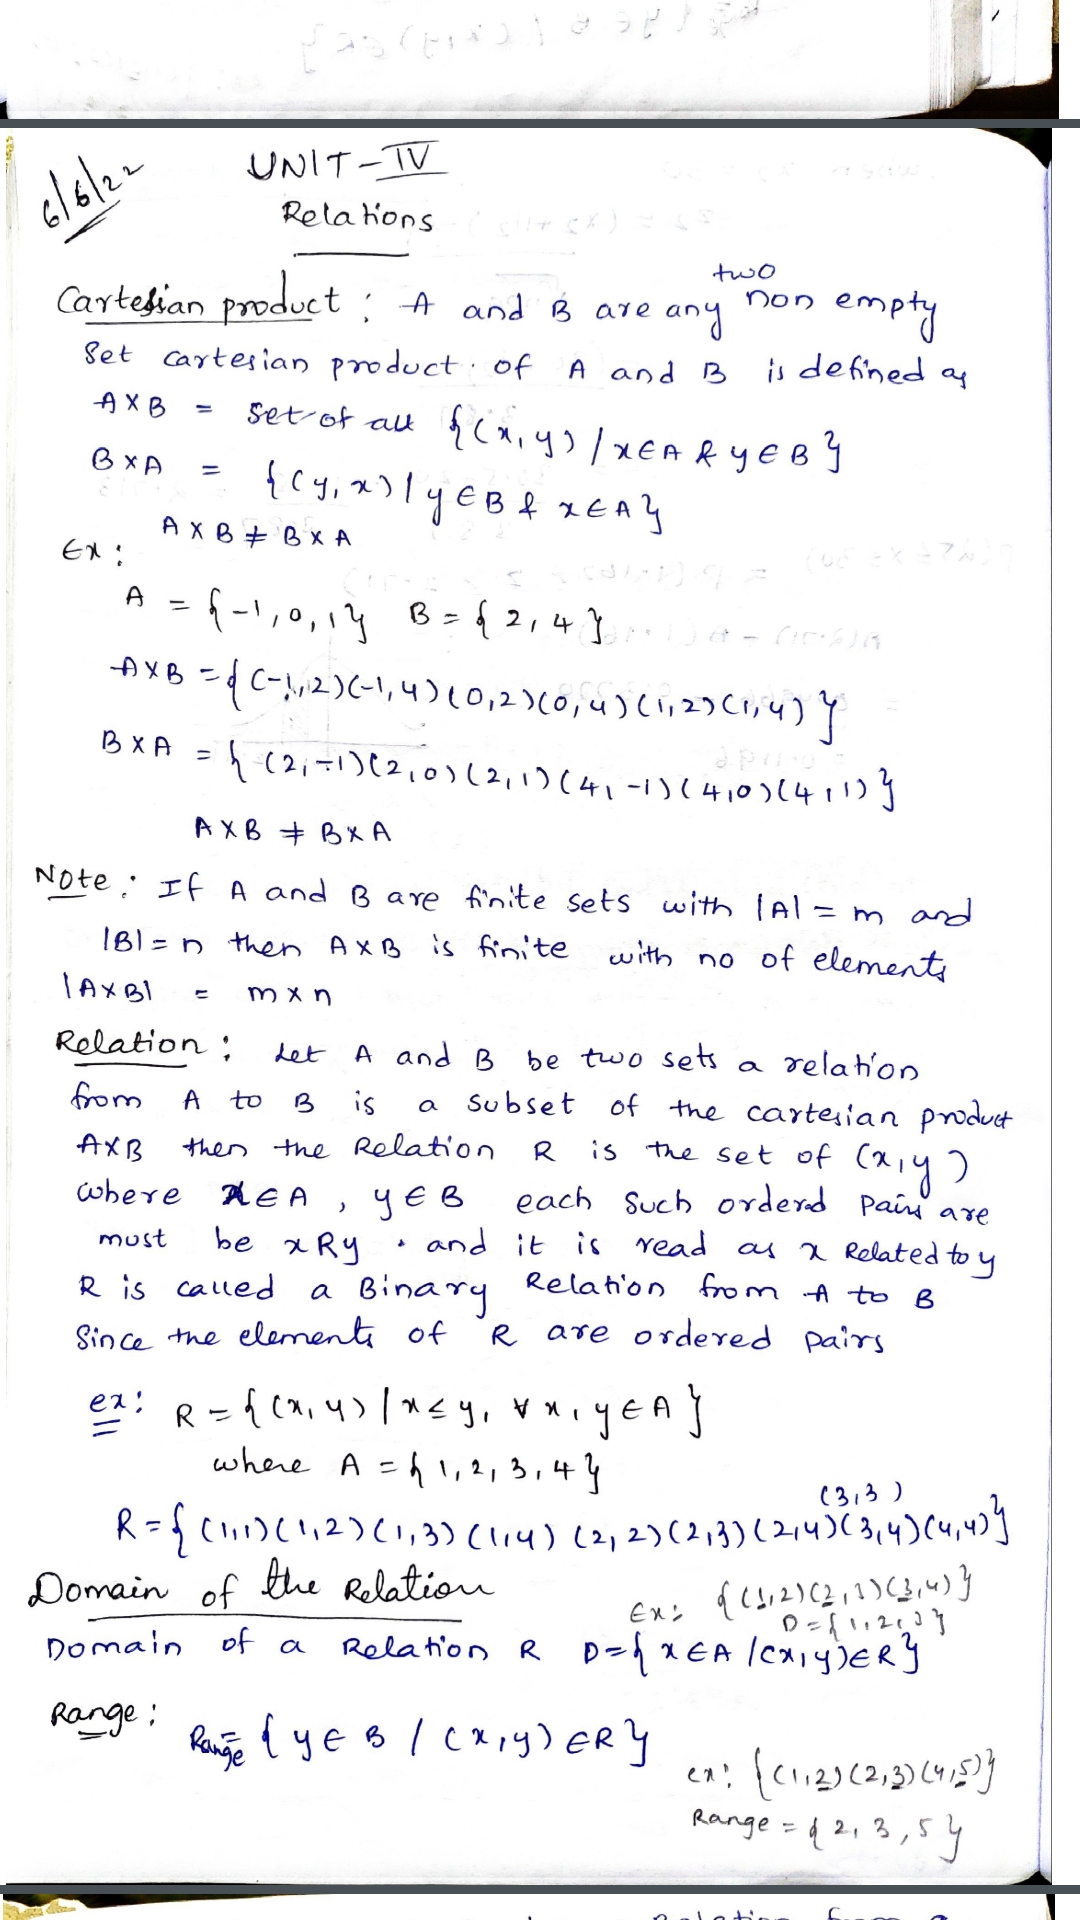 6/6/22
UNIT-IV
Relations
Cartesian product : A and B are any two non empty
Set cartesian product of A and B is defined as
A×B = Set of all {(x,y)/x∈A & y∈B}
B×A = {(y,x)/y∈B & x∈A}
A×B≠B×A
Ex:
A = {-1,0,1} B={2,4}
A×B={(-1,2)(-1,4)(0,2)(0,4)(1,2)(1,4)}
B×A = {(2,-1)(2,0)(2,1)(4,-1)(4,0)(4,1)}
A×B ≠ B×A
Note: If A and B are finite sets with |A|=m and
|B|=n then A×B is finite with no of elements
|A×B| = m×n
Relation: Let A and B be two sets a relation
from A to B is a subset of the cartesian product
A×B then the Relation R is the set of (x,y)
where x∈A, y∈B each such orderd pairs are
must be xRy. and it is read as x Related to y
R is called a Binary Relation from A to B
Since the elements of R are ordered pairs
ex: R={(x,y)|x≤y, ∀x,y∈A}
where A={1,2,3,4}
(3,3)
R={(1,1)(1,2)(1,3)(1,4)(2,2)(2,3)(2,4)(3,4)(4,4)}
Domain of the Relation
Ex: {(1,2)(2,3)(3,4)}
D={1,2,3}
Domain of a Relation R D={x∈A/(x,y)∈R}
Range:
Range= {y∈B/(x,y)∈R}
ex: {(1,2)(2,3)(4,5)}
Range={2,3,5}